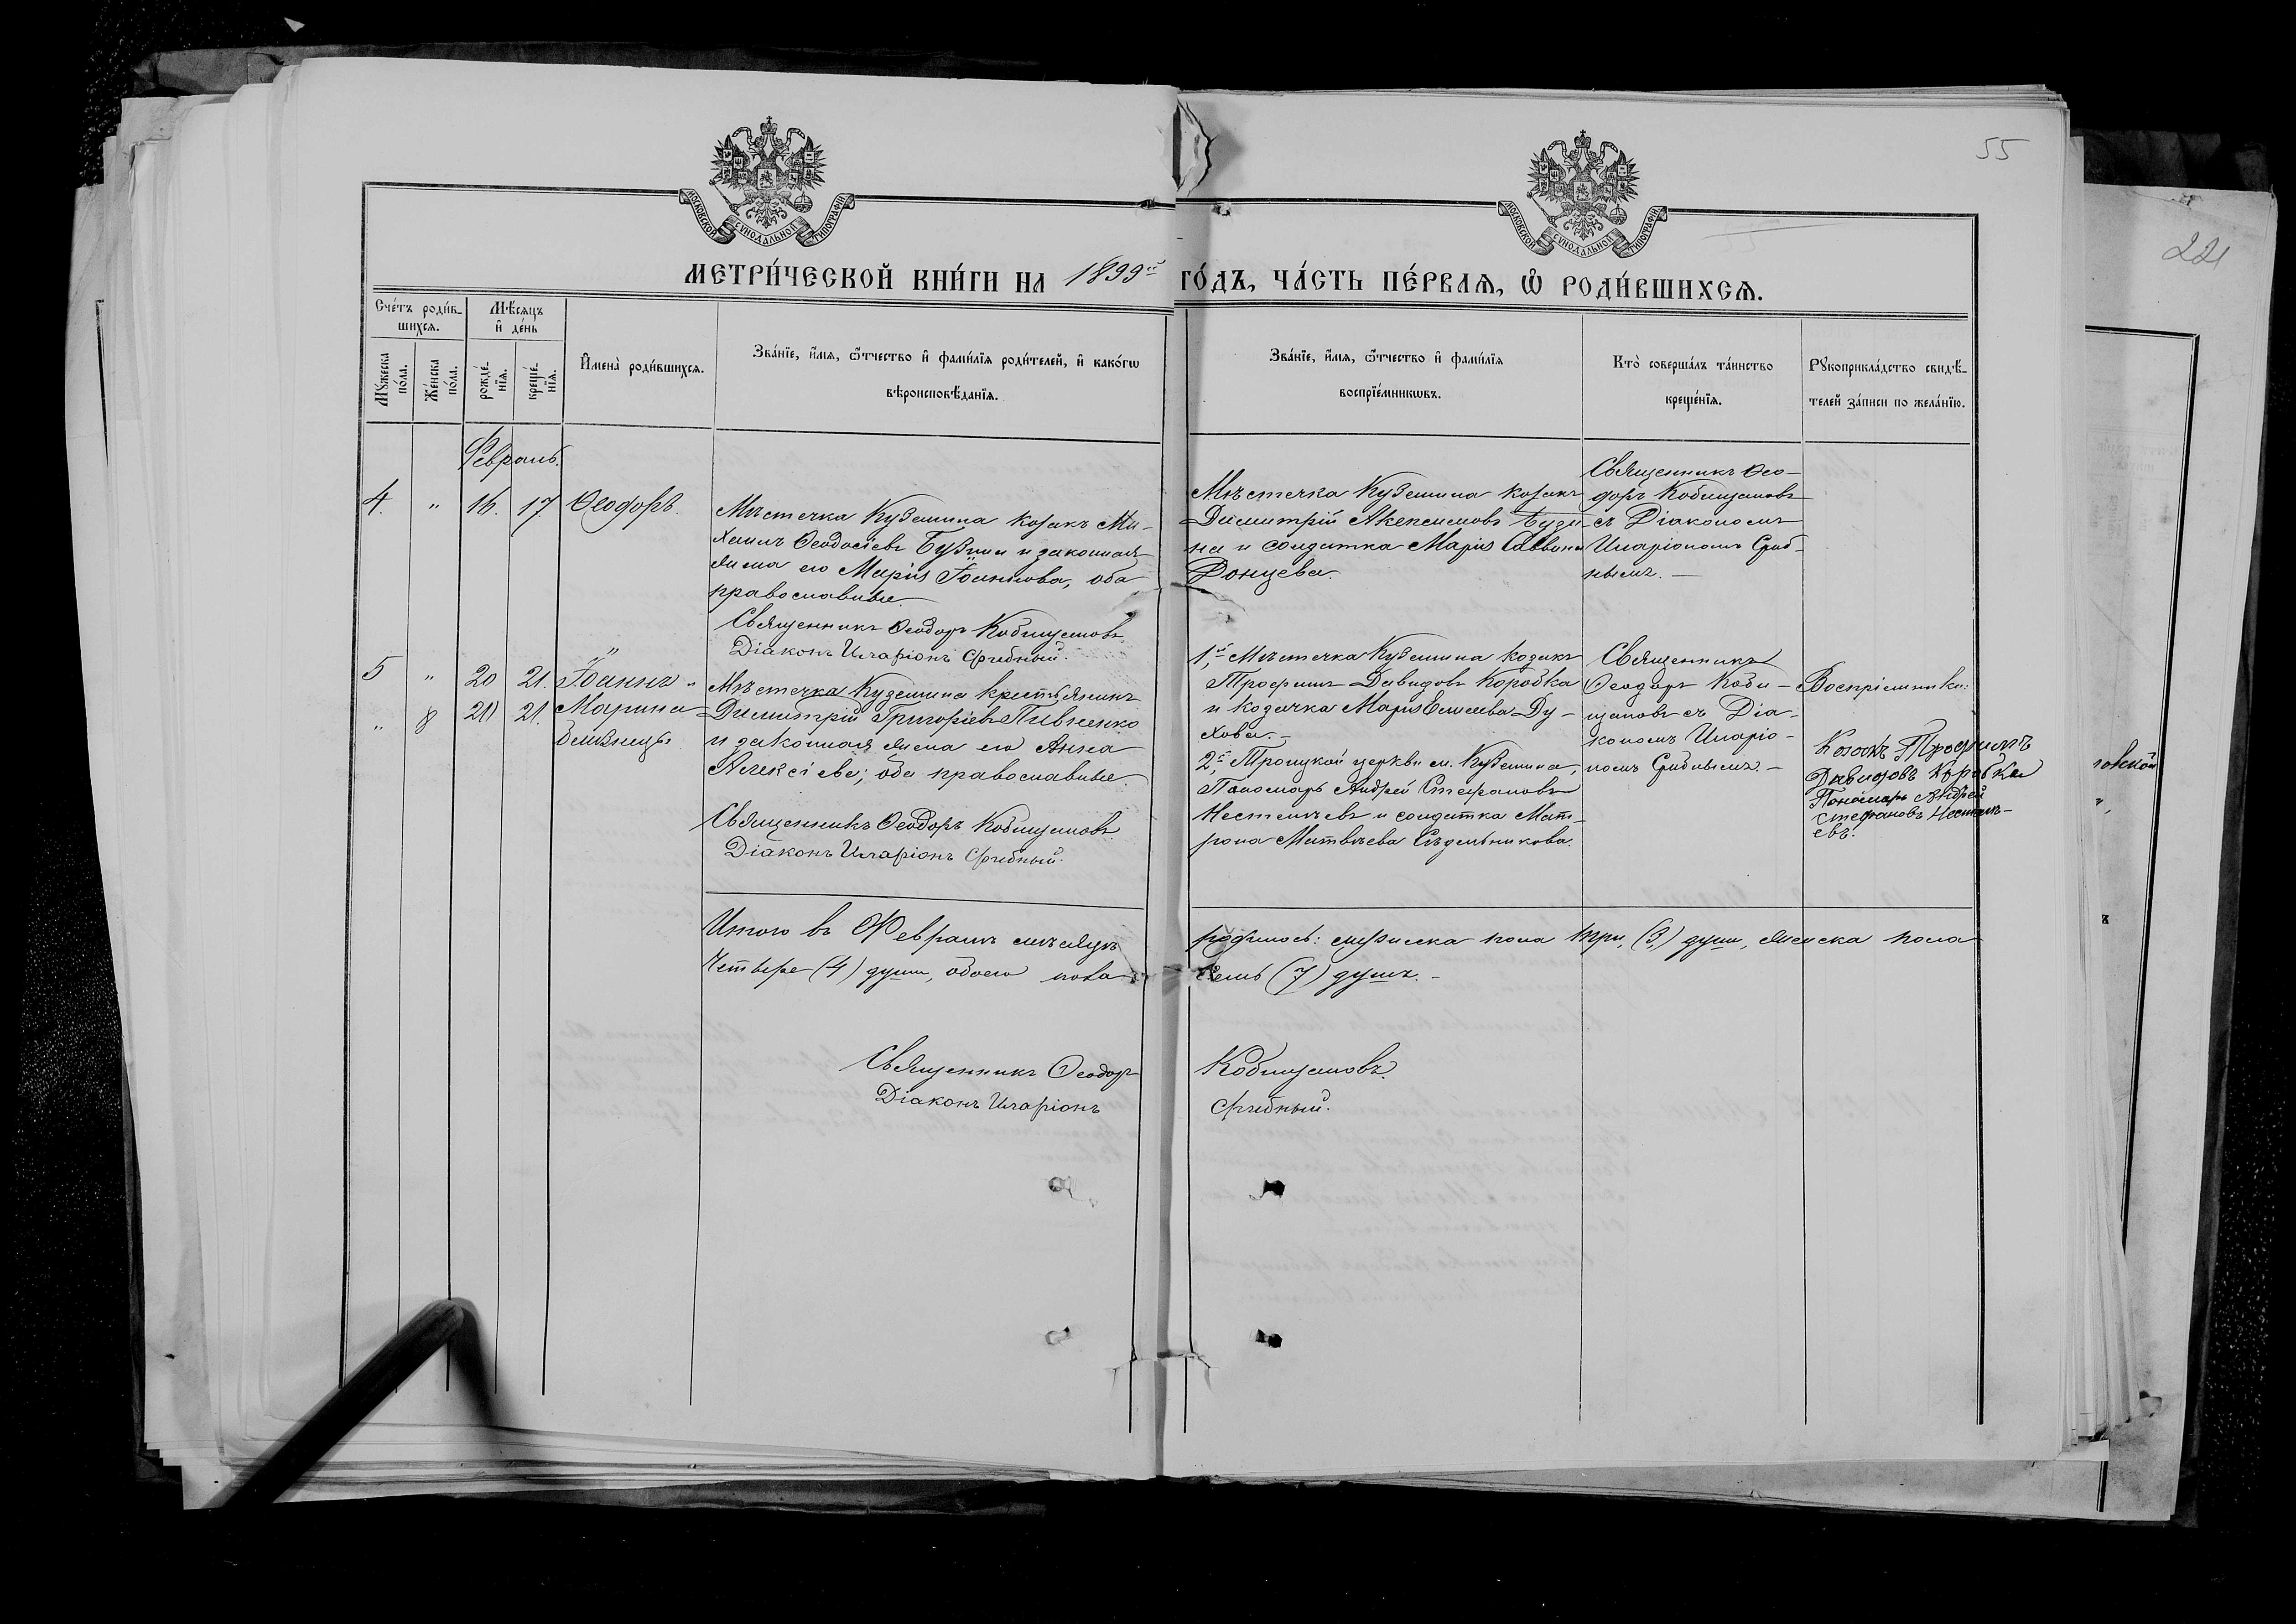 55
221
МОСКОВСКОЙ СѴНОДАЛЬНОЙ ТИПОГРАФІИ
МОСКОВСКОЙ СѴНОДАЛЬНОЙ ТИПОГРАФІИ
МЕТРИ́ЧЕСКОЙ КНИ́ГИ НА 1899й ГО́ДЪ, ЧА́СТЬ ПЕ́РВАѦ, Ѽ РОДИ́ВШИХСѦ.
Сче́тъ роди́в-
шихся.
Мꙋ́жеска
по́ла.
Же́нска
по́ла.
Мѣ́сяцъ
и҆ де́нь
рожде́-
нїя.
креще́-
нїя.
И҆мена̀ роди́вшихся.
Зва́нїе, и҆́мя, ѻ҆́тчество и҆ фами́лїя роди́телей, и҆ како́гѡ
вѣроисповѣ́данїя.
Зва́нїе, и҆́мя, ѻ҆́тчество и҆ фами́лїя
воспрїе́мникѡвъ.
Кто̀ соверша́лъ та́инство
креще́нїя.
Рꙋкоприкла́дство свидѣ́-
телей за́писи по жела́нїю.
Февраль.
4. " 16. 17. Ѳеодоръ.
Мѣстечка Куземина козакъ Ми-
хаилъ Ѳеодосіевъ Бузина и законная
жена его Марія Іоаннова, оба
православные.
Священникъ Ѳеодоръ Кобищановъ.
Діаконъ Иларіонъ Срибный.
Мѣстечка Куземина козакъ
Димитрій Акепсимовъ Бузи-
на и солдатка Марія Саввина
Донцева.
Священникъ Ѳео-
доръ Кобищановъ
съ Діакономъ
Иларіономъ Сриб-
нымъ. —
5 " 20 21. Іоаннъ "
" 8 20 21. Марина
близнецы
Мѣстечка Куземина крестьянинъ
Димитрій Григоріевъ Пивненко
и законная жена его Анна
Алексіева; оба православные.
Священникъ Ѳеодоръ Кобищановъ.
Діаконъ Иларіонъ Срибный.
1,й Мѣстечка Куземина козакъ
Трофимъ Давидовъ Коробка
и козачка Марія Елисеева Ду-
хова. —
2,й Троицкой церкви м. Куземина,
Пономарь Андрей Стефановъ
Нестеличевъ и солдатка Мат-
рона Матвѣева Сѣдельникова.
Священникъ
Ѳеодоръ Коби-
щановъ съ Діа-
кономъ Иларіо-
номъ Срибнымъ. —
Воспріемники:
Козакъ Трофимъ
Давидовъ Коробка
Пономарь Андрей
Стефановъ
евъ.
Итого въ Февралѣ мѣсяцѣ родилось: мужеска пола три, (3,) души, женска пола
четыре (4) души, обоего пола семь (7) душъ. —
Священникъ Ѳеодоръ Кобищановъ.
Діаконъ Иларіонъ Срибный.